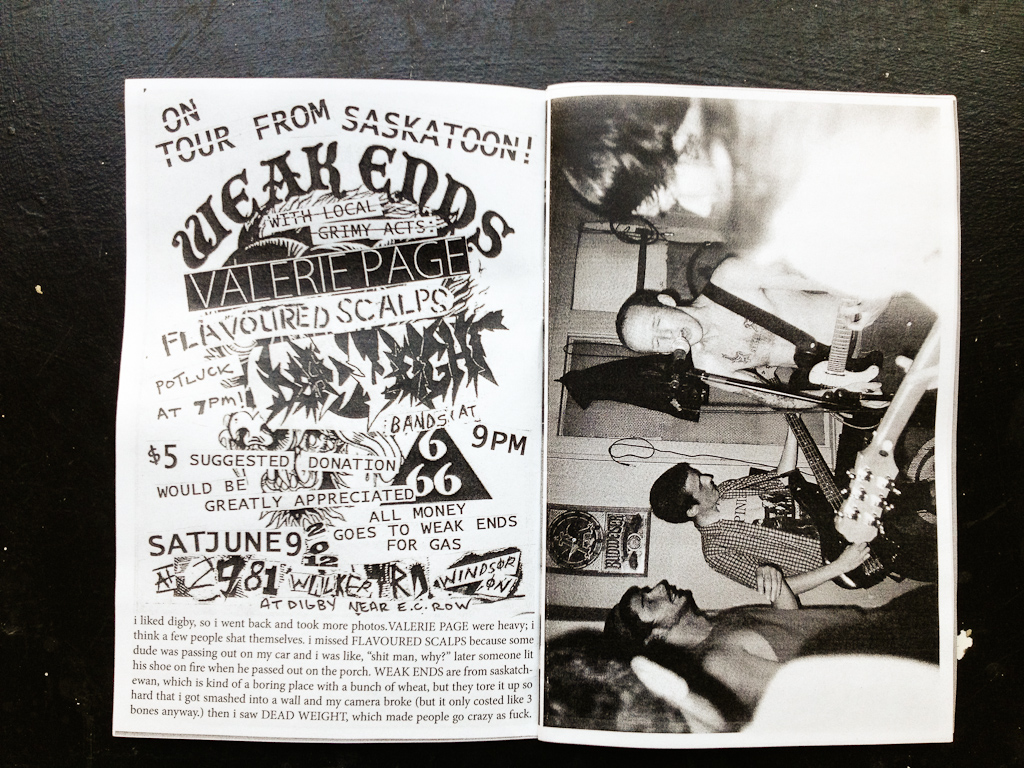 ON
TOUR FROM SASKATOON!
WEAK ENDS
WITH LOCAL
GRIMY ACTS:
VALERIE PAGE
FLAVOURED SCALPS
DEAD WEIGHT
POTLUCK
AT 7PM!
BANDS AT
9PM
6
66
$5 SUGGESTED DONATION
WOULD BE
GREATLY APPRECIATED
ALL MONEY
GOES TO WEAK ENDS
FOR GAS
SAT JUNE 9
2012
AT 2981 WALKER RD. WINDSOR, ON
AT DIGBY NEAR E.C. ROW
i liked digby, so i went back and took more photos.VALERIE PAGE were heavy; i
think a few people shat themselves. i missed FLAVOURED SCALPS because some
dude was passing out on my car and i was like, “shit man, why?” later someone lit
his shoe on fire when he passed out on the porch. WEAK ENDS are from saskatch-
ewan, which is kind of a boring place with a bunch of wheat, but they tore it up so
hard that i got smashed into a wall and my camera broke (but it only costed like 3
bones anyway.) then i saw DEAD WEIGHT, which made people go crazy as fuck.